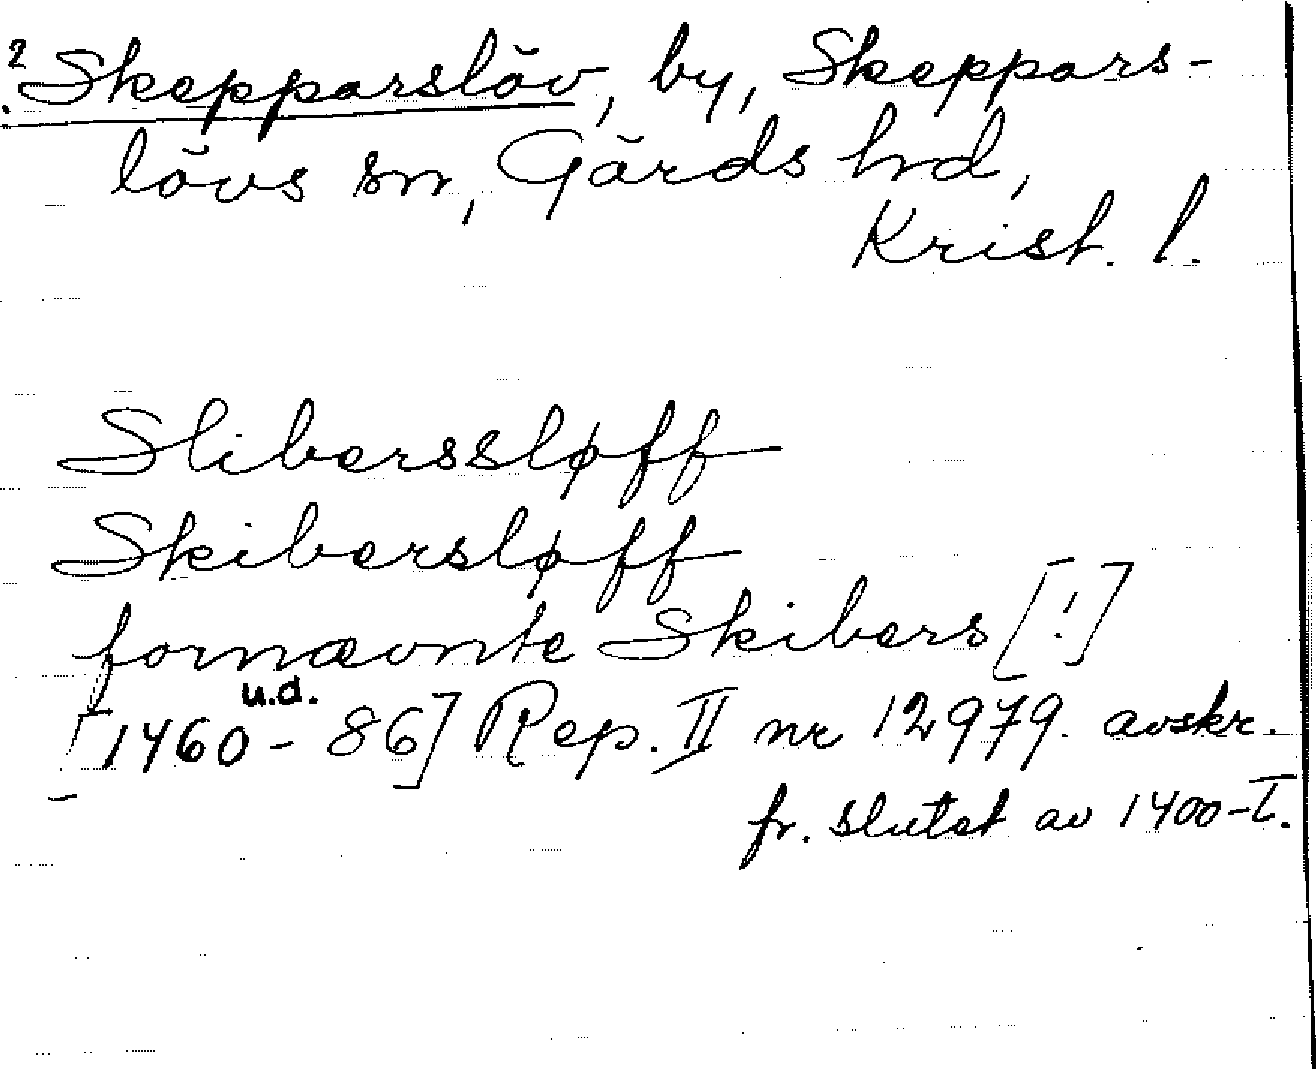 ? Skepparslöv, by, Skeppars-
lövs sn, Gärds hd,
Krist. l.
Sliberssløff
Skibersløff
fornævnte Skibers [!]
u.d.
[1460-86] Rep. II nr 12979. avskr.
fr. slutet av 1400-t.